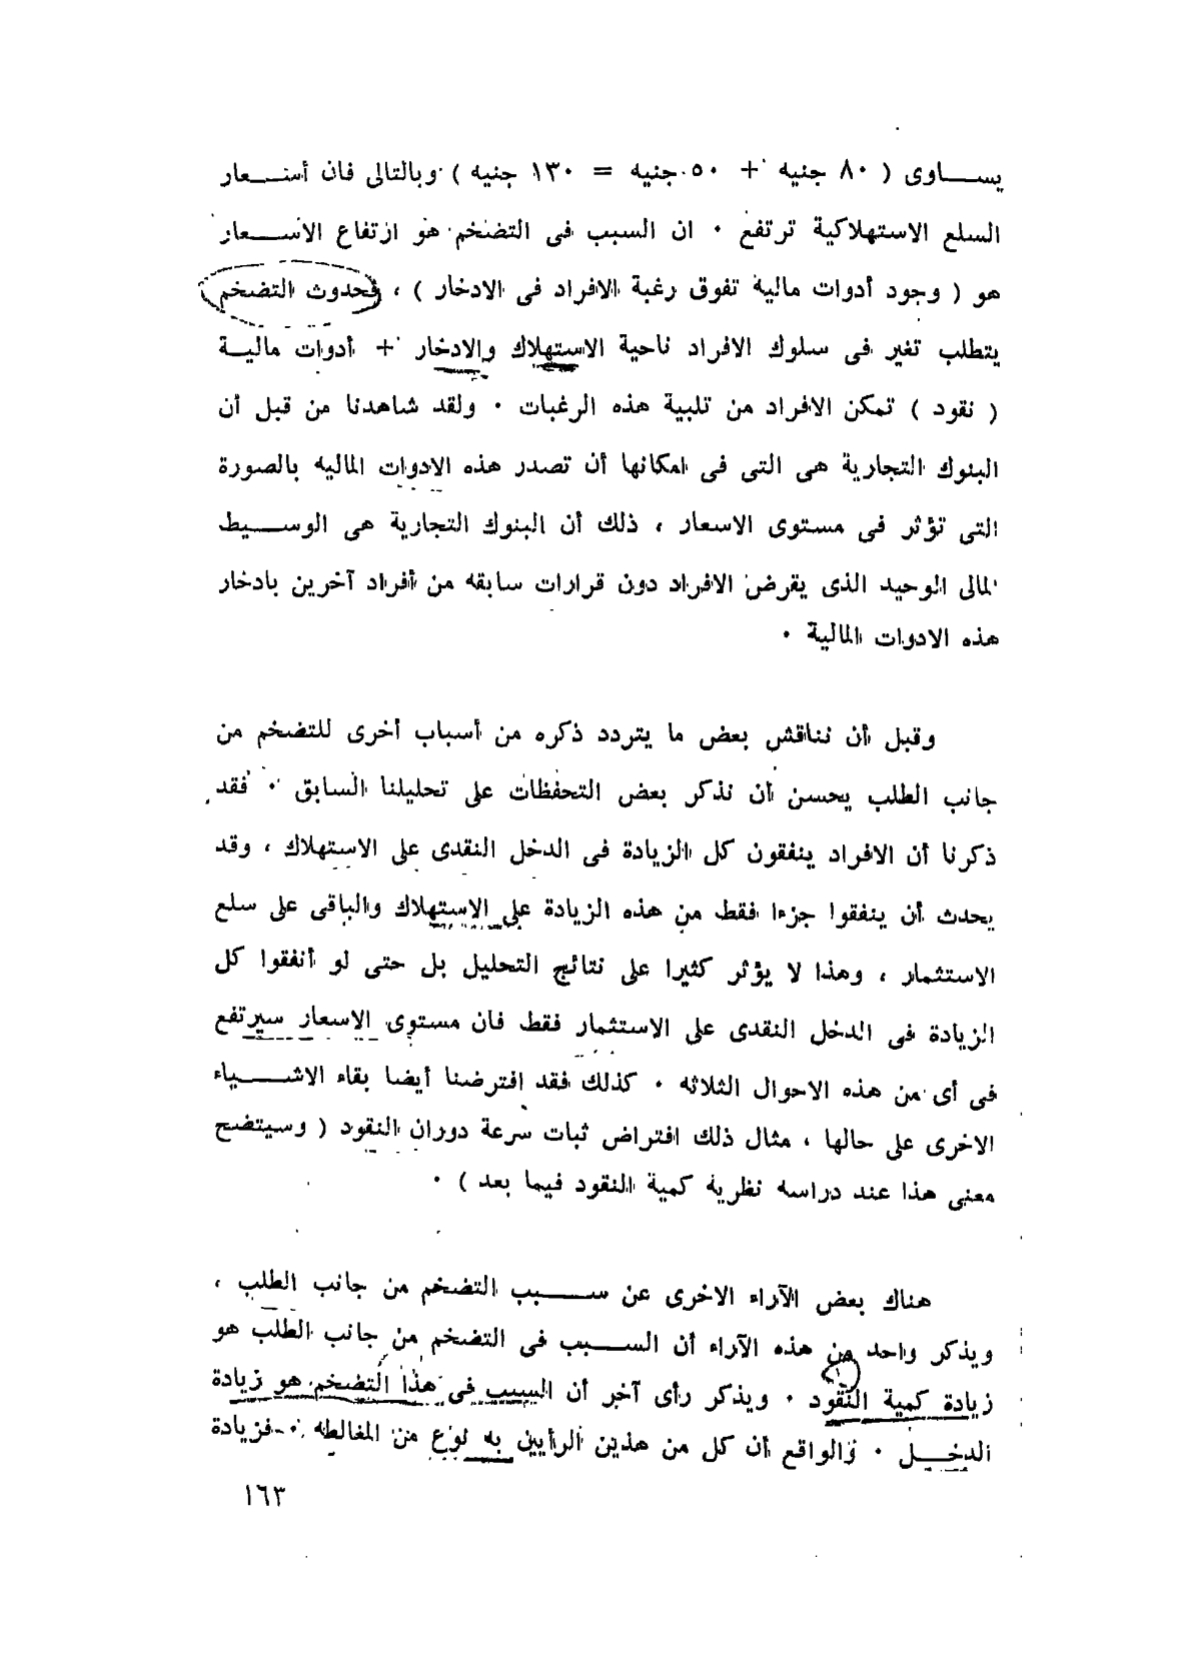 يساوى ( ٨٠ جنيه + ٥٠ جنيه = ١٣٠ جنيه ) وبالتالى فان أسعار
السلع الاستهلاكية ترتفع ٠ ان السبب فى التضخم هو ارتفاع الاسعار
هو ( وجود أدوات مالية تفوق رغبة الافراد فى الادخار ) ، فحدوث التضخم
يتطلب تغير فى سلوك الافراد ناحية الاستهلاك والادخار + أدوات مالية
( نقود ) تمكن الافراد من تلبية هذه الرغبات ٠ ولقد شاهدنا من قبل أن
البنوك التجارية هى التى فى امكانها أن تصدر هذه الادوات الماليه بالصورة
التى تؤثر فى مستوى الاسعار ، ذلك أن البنوك التجارية هى الوسيط
المالى الوحيد الذى يقرض الافراد دون قرارات سابقه من أفراد آخرين بادخار
هذه الادوات المالية ٠
وقبل أن نناقش بعض ما يتردد ذكره من أسباب أخرى للتضخم من
جانب الطلب يحسن أن نذكر بعض التحفظات على تحليلنا السابق ٠ فقد
ذكرنا أن الافراد ينفقون كل الزيادة فى الدخل النقدى على الاستهلاك ، وقد
يحدث أن ينفقوا جزءا فقط من هذه الزيادة على الاستهلاك والباقى على سلع
الاستثمار ، وهذا لا يؤثر كثيرا على نتائج التحليل بل حتى لو أنفقوا كل
الزيادة فى الدخل النقدى على الاستثمار فقط فان مستوى الاسعار سيرتفع
فى أى من هذه الاحوال الثلاثه ٠ كذلك فقد افترضنا أيضا بقاء الاشياء
الاخرى على حالها ، مثال ذلك افتراض ثبات سرعة دوران النقود ( وسيتضح
معنى هذا عند دراسه نظرية كمية النقود فيما بعد ) ٠
هناك بعض الآراء الاخرى عن سبب التضخم من جانب الطلب ،
ويذكر واحد من هذه الآراء أن السبب فى التضخم من جانب الطلب هو
زيادة كمية النقود ٠ ويذكر رأى آخر أن السبب فى هذا التضخم هو زيادة
الدخل ٠ والواقع أن كل من هذين الرأيين به نوع من المغالطه ٠ فزيادة
١٦٣